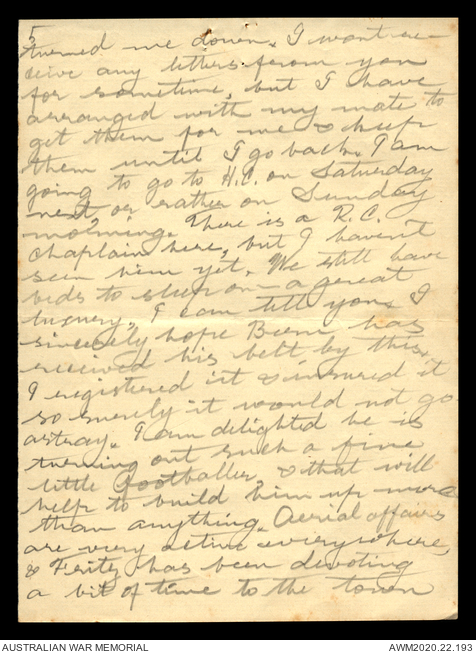 5
turned me down. I wont re-
ceive any letters from you
for sometime, but I have
arranged with my mate to
get them for me & keep
them until I go back. I am
going to go to H.C. on Saturday
next or rather on Sunday
morning. There is a R.C.
chaplain here, but I haven't
seen him yet. We still have
beds to sleep on - a great
luxury, I can tell you. I
sincerely hope has
received his belt by this,
I registered it & insured it
so surely it would not go
astray. I am delighted he is
turning out such a fine
little footballer, & that will
help to build him up more
than anything. Aerial affairs
are very active everywhere,
& Fritz has been devoting
a bit of time to the town
AUSTRALIAN WAR MEMORIAL
AWM2020.22.193